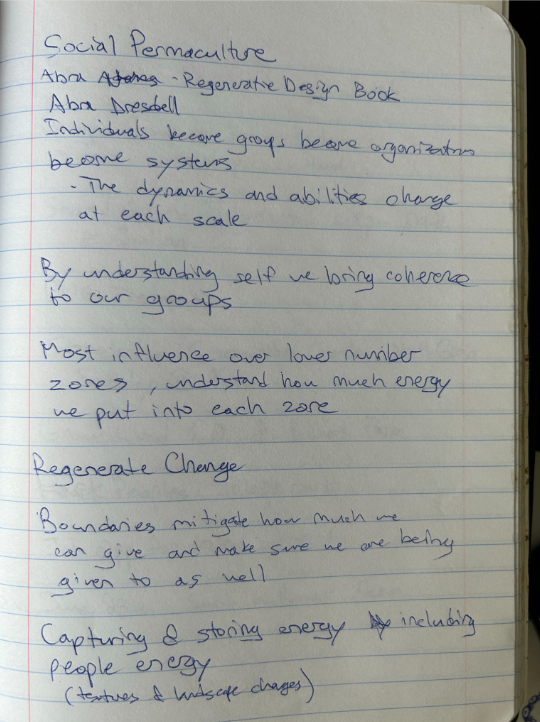 Social Permaculture
Abra - Regenerative Design Book
Abra Dresdell
Individuals become groups become organizations
become systems
- The dynamics and abilities change
at each scale
By understanding self we bring coherence
to our groups
Most influence over lower number
zones, understand how much energy
we put into each zone
Regenerate Change
Boundaries mitigate how much we
can give and make sure we are being
given to as well
Capturing & storing energy including
people energy
(textures & landscape changes)